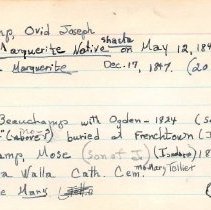 mp, Ovid Joseph
Marguerite Native shasta on May 12, 184
Marguerite Dec. 17, 1847. (20
Beauchamp with Ogden - 1824 (S
"(above") buried at Frenchtown (J
amp, Mose (son of J) (Isadore) 18
a Walla Cath. Cem. m-Mary Tollier
e Mary